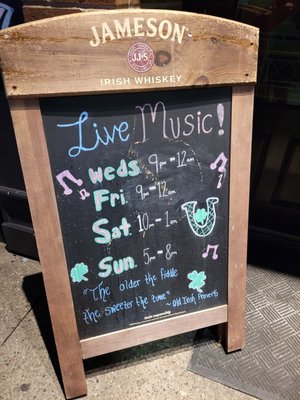 JAMESON
JJ&S
IRISH WHISKEY
Live Music!
Weds 9pm - 12am
Fri 9pm - 12am
Sat 10pm - 1am
Sun 5pm - 8
"The older the fiddle
the sweeter the tune" ~ Old Irish Proverb